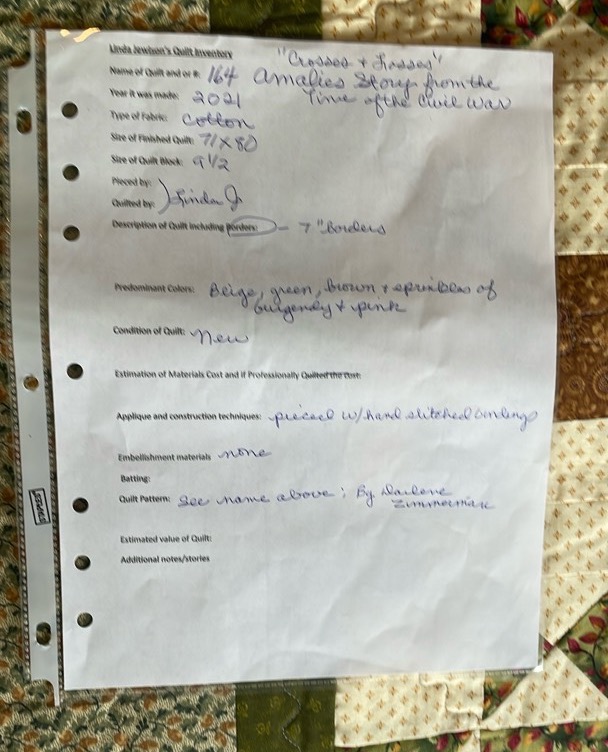 Linda Jewison's Quilt Inventory
"Crosses + Losses"
Name of Quilt and or #: 164 Amalies Story from the
Time of the Civil War
Year it was made: 2021
Type of Fabric: Cotton
Size of Finished Quilt: 71 x 80
Size of Quilt Block: 9 1/2
Pieced by:
Quilted by: ) Linda J
Description of Quilt including Borders: - 7" borders
Predominant Colors: Beige, green, brown + sprinkles of
burgendy + pink
Condition of Quilt: New
Estimation of Materials Cost and if Professionally Quilted the cost:
Applique and construction techniques: pieced w/ hand stitched bindings
Embellishment materials none
Batting:
Quilt Pattern: See name above; By Darlene
Zimmerman
Estimated value of Quilt:
Additional notes/stories